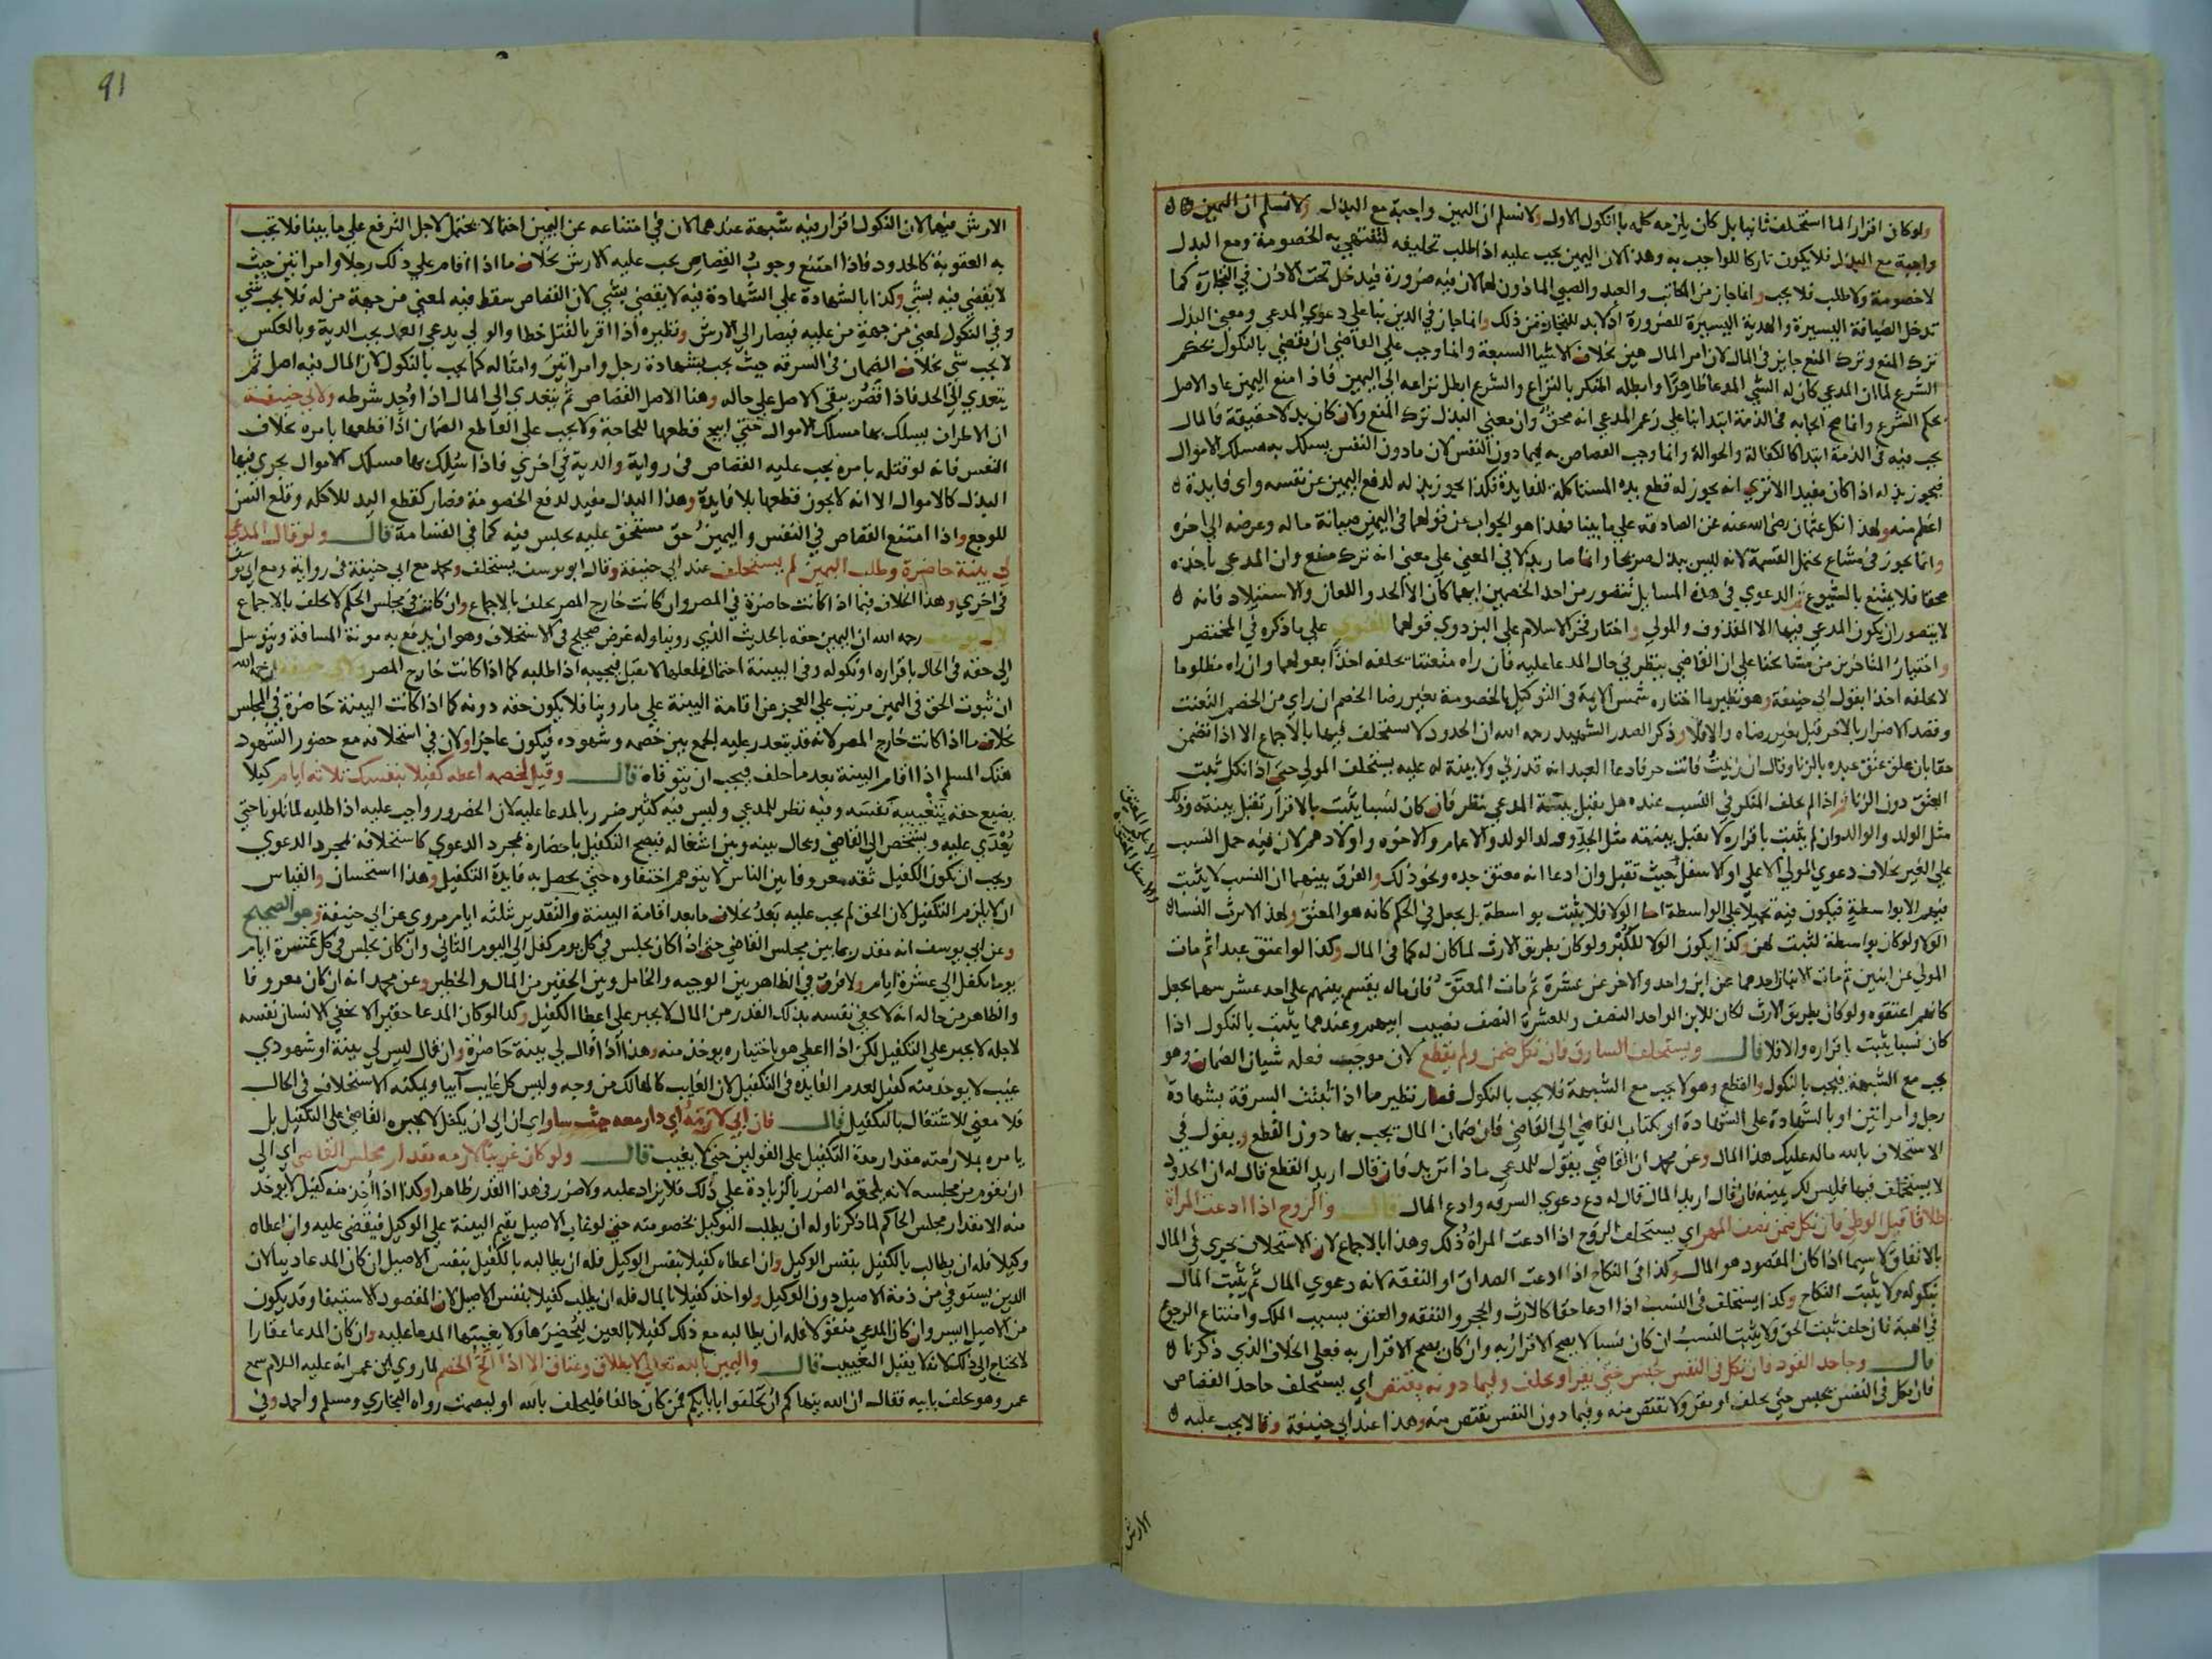 ولو كان اقرارا لما استحلف ثانيا بل كان يلزمه كله بالنكول الاول ولا نسلم ان اليمين واجبة مع البذل ولا نسلم ان اليمين
واجبة مع البذل فلا يكون تاركا للواجب به وهذا لان اليمين يجب عليه اذا طلب تحليفه لتنتهي به الخصومة ومع البذل
لا خصومة ولا طلب فلا يجب وانما جاز من المكاتب والعبد والصبي الماذون لهما لان فيه ضرورة فيدخل تحت الاذن في التجارة كما
تدخل الضيافة اليسيرة والهدية اليسيرة للضرورة اذ لا بد للتجارة من ذلك وانما جاز في الدين بنا على دعوي المدعي ومعني البذل
ترك المنع وترك المنع جايز في المال لان امر المال هين بخلاف الاشيا السبعة وانما وجب علي القاضي ان يقضي بالنكول بحكم
الشرع لما ان المدعي كان له الشي المدعا ظاهرا وابطله المنكر بالنزاع والشرع ابطل نزاعه الي اليمين فاذا امتنع اليمين عاد الاصل
بحكم الشرع وانما صح ايجابه في الذمة ابتدا بنا علي زعم المدعي انه محق وان معني البذل ترك المنع ولان كان بدلا حقيقة فالمال
يجب فيه في الذمة ابتدا كالكفالة والحوالة وانما وجب القصاص به فيما دون النفس لان ما دون النفس يسلك به مسلك الاموال
فيجوز بذله اذا كان مفيدا الا تري انه يجوز له قطع يده المستاكلة للفايدة فكذا يجوز بذله لدفع اليمين عن نفسه واي فايدة
اعظم منه ولهذا نكل عثمان رضي الله عنه عن الصادقة علي ما بينا فهذا هو الجواب عن قولهما في اليمين صيانة ماله وعرضه الي اخره
وانما يجوز في مشاع يحتمل القسمة لانه ليس ببذل صريحا وانما صار بذلا في المعني علي معني انه ترك منع وان المدعي ياخذه
محقا فلا يمتنع بالشيوع ثم الدعوي في هذه المسايل تتصور من احد الخصمين ايهما كان الا الحد واللعان والاستيلاد فانه
لا يتصور ان يكون المدعي فيها الا المقذوف والمولي واختار فخر الاسلام علي البزدوي قولهما للفتوي علي ما ذكره في المختصر
واختيار المتاخرين من مشايخنا علي ان القاضي ينظر في حال المدعا عليه فان راه متعنتا يحلفه اخذا بقولهما وان راه مظلوما
لا يحلفه اخذا بقول ابي حنيفة وهو نظير ما اختاره شمس الايمة في التوكيل بالخصومة بغير رضا الخصم ان راي من الخصم التعنت
وقصد الاضرار بالاخر قبل بغير رضاه والا فلا وذكر الصدر الشهيد رحمه الله ان الحدود لا يستحلف فيها بالاجماع الا اذا تضمن
حقا بان علق عتق عبده بالزنا وقال ان زنيت فانت حر فادعا العبد انه قد زني ولا بينة له عليه يستحلف المولي حتي اذا نكل ثبت
العتق دون الزنا واذا لم يحلف المنكر في النسب عنده هل يقبل بينة المدعي ينظر فان كان نسبا يثبت بالاقرار تقبل بينته وذلك
مثل الولد والوالد وان لم يثبت باقراره لا يقبل بينته مثل الجد وولد الولد والاعمام والاخوه واولادهم لان فيه حمل النسب
علي الغير بخلاف دعوي المولي الاعلي او الاسفل حيث تقبل وان ادعا انه معتق جده ونحو ذلك والفرق بينهما ان النسب لا يثبت
فيهم الا بواسطة فيكون فيه تحميلا علي الواسطة اما الولا فلا يثبت بواسطة بل يجعل في الحكم كانه هو المعتق ولهذا لا ترث النسا
الولا ولو كان بواسطة لثبت لهن وكذا يكون الولا للكبر ولو كان بطريق الارث لما كان له كما في المال وكذا لو اعتق عبدا ثم مات
المولي عن ابنين ثم مات الابنان احدهما عن ابن واحد والاخر عن عشرة ثم مات المعتق فان ماله يقسم بينهم علي احد عشر سهما يجعل
كانهم اعتقوه ولو كان بطريق الارث لكان للابن الواحد النصف وللعشرة النصف نصيب ابيهم وعندهما يثبت بالنكول اذا
كان نسبا يثبت باقراره والا فلا قال ويستحلف السارق فان نكل ضمن ولم يقطع لان موجب فعله شيان الضمان وهو
يجب مع الشبهة فيجب بالنكول والقطع وهو لا يجب مع الشبهة فلا يجب بالنكول فصار نظير ما اذا ثبتت السرقة بشهادة
رجل وامراتين او بالشهادة علي الشهادة او بكتاب القاضي الي القاضي فان ضمان المال يجب بها دون القطع ويقول في
الاستحلاف بالله ماله عليك هذا المال وعن محمد ان القاضي يقول للمدعي ماذا تريد فان قال اريد القطع قال له ان الحدود
لا يستحلف فيها فليس لك يمينه فان قال اريد المال قال له دع دعوي السرقه وادع المال قال والزوج اذا ادعت المراة
طلاقا قبل الوطي فان نكل ضمن نصف المهر اي يستحلف الزوج اذا ادعت المراة ذلك وهذا بالاجماع لان الاستحلاف يجري في المال
بالاتفاق لا سيما اذا كان المقصود هو المال وكذا في النكاح اذا ادعت الصداق او النفقة لانه دعوي المال ثم يثبت المال
بنكوله ولا يثبت النكاح وكذا يستحلف في النسب اذا ادعا حقا كالارث والحجر والنفقه والعتق بسبب الملك وامتناع الرجوع
في الهبة فان حلف ثبت الحق ولا يثبت النسب ان كان نسبا لا يصح الاقرار به وان كان يصح الاقرار به فعلي الخلاف الذي ذكرنا
قال وجاحد القود فان نكل في النفس حبس حتي يقر او يحلف وفيما دونه يقتص اي يستحلف جاحد القصاص
فان نكل في النفس يحبس حتي يحلف او يقر ولا يقتص منه وفيما دون النفس يقتص منه وهذا عند ابي حنيفة وقالا يجب عليه
الارش
91
الارش فيهما لان النكول اقرار فيه شبهة عندهما لان في امتناعه عن اليمين احتمالا يحتمل لاجل الترفع علي ما بينا فلا تجب
به العقوبة كالحدود فاذا امتنع وجوب القصاص يجب عليه الارش بخلاف ما اذا اقام علي ذلك رجلا وامراتين حيث
لا يقضي فيه بشي وكذا بالشهادة علي الشهادة فيه لا يقضي بشي لان القصاص سقط فيه لمعني من جهة من له فلا يجب شي
وفي النكول لمعني من جهة من عليه فيصار الي الارش ونظيره اذا اقر بالقتل خطا والولي يدعي العمد يجب الدية وبالعكس
لا يجب شي بخلاف الضمان في السرقه حيث يجب بشهادة رجل وامراتين وامثاله كما يجب بالنكول لان المال فيه اصل ثم
يتعدي الي الحد فاذا قصر بقي الاصل علي حاله وهنا الاصل القصاص ثم يتعدي الي المال اذا وجد شرطه ولابي حنيفة
ان الاطراف يسلك بها مسلك الاموال حتي ابيح قطعها للحاجة ولا يجب علي القاطع الضمان اذا قطعها بامره بخلاف
النفس فانه لو قتله بامره يجب عليه القصاص في رواية والدية في اخري فاذا سلك بها مسلك الاموال يجري فيها
البذل كالاموال الا انه لا يجوز قطعها بلا فايدة وهذا البذل مفيد لدفع الخصومة فصار كقطع اليد للاكله وقلع السن
للوجع واذا امتنع القصاص في النفس واليمين حق مستحق عليه يحبس فيه كما في القسامة قال ولو قال المدعي
لي بينة حاضرة وطلب اليمين لم يستحلف عند ابي حنيفة وقال ابو يوسف يستحلف ومحمد مع ابي حنيفة في رواية ومع ابي يوسف
في اخري وهذا الخلاف فيما اذا كانت حاضرة في المصر وان كانت خارج المصر يحلف بالاجماع وان كانت في مجلس الحكم لا يحلف بالاجماع
لابي يوسف رحمه الله ان اليمين حقه بالحديث الذي روينا وله غرض صحيح في الاستحلاف وهو ان يدفع به مونة المسافة ويتوسل
الي حقه في الحال باقراره او نكوله وفي البينة احتمال فلعلها لا تقبل فيجيبه اذا طلبه كما اذا كانت خارج المصر ولابي حنيفة رحمه الله
ان ثبوت الحق في اليمين مرتب علي العجز عن اقامة البينة علي ما روينا فلا يكون حقه دونه كما اذا كانت البينة حاضرة في المجلس
بخلاف ما اذا كانت خارج المصر لانه قد يتعذر عليه الجمع بين خصمه وشهوده فيكون عاجزا ولان في استحلافه مع حضور الشهود
هتك المسلم اذا اقام البينة بعد ما حلف فيجب ان يتوقاه قال وقيل لخصمه اعطه كفيلا بنفسك ثلاثة ايام كيلا
يضيع حقه بتغييبه نفسه وفيه نظر للمدعي وليس فيه كثير ضرر بالمدعا عليه لان الحضور واجب عليه اذا طلبه لما تلونا حتي
يعدي عليه ويشخص الي القاضي ويحال بينه وبين اشغاله فيصح التكفيل باحضاره بمجرد الدعوي كاستحلافه بمجرد الدعوي
ويجب ان يكون الكفيل ثقه معروفا بين الناس لا يتوهم اختفاوه حتي يحصل به فايدة التكفيل وهذا استحسان والقياس
ان لا يلزم التكفيل لان الحق لم يجب عليه بعد بخلاف ما بعد اقامة البينة والتقدير بثلثه ايام مروي عن ابي حنيفة وهو الصحيح
وعن ابي يوسف انه مقدر بما بين مجلس القاضي حتي اذا كان يجلس في كل يوم كفل الي اليوم الثاني وان كان يجلس في كل عشرة ايام
يوما يكفل الي عشرة ايام ولا فرق في الظاهر بين الوجيه والخامل وبين الحقير من المال والخطير وعن محمد انه ان كان معروفا
والظاهر من حاله انه لا يخفي نفسه بذلك القدر من المال لا يجبر علي اعطا الكفيل وكذا لو كان المدعا حقيرا لا يخفي الانسان نفسه
لاجله لا يجبر علي التكفيل لكن اذا اعطي هو باختياره يوخذ منه وهذا اذا قال لي بينة حاضرة وان قال ليس لي بينة او شهودي
غيب لا يوخذ منه كفيل لعدم الفايده في التكفيل لان الغايب كالهالك من وجه وليس كل غايب آيبا ويمكنه الاستحلاف في الحال
فلا معني للاشتغال بالتكفيل قال فان ابي لازمه اي دار معه حيث سار اي ان ابي ان يكفل لا يجبره القاضي علي التكفيل بل
يامره بملازمته مقدار مدة التكفيل علي القولين حتي لا يغيب قال ولو كان غريبا لازمه مقدار مجلس القاضي اي الي
ان يقوم من مجلسه لانه يلحقه الضرر بالزيادة علي ذلك فلا يزاد عليه ولا ضرر في هذا القدر ظاهرا وكذا اذا اخذ منه كفيل لا يوخذ
منه الا مقدار مجلس الحاكم لما ذكرنا وله ان يطلب التوكيل بخصومته حتي لو غاب الاصيل يقيم البينة علي الوكيل فيقضي عليه وان اعطاه
وكيلا فله ان يطالب بالكفيل بنفس الوكيل وان اعطاه كفيلا بنفس الوكيل فله ان يطالبه بالكفيل بنفس الاصيل ان كان المدعا دينا لان
الدين يستوفي من ذمة الاصيل دون الوكيل ولو اخذ كفيلا بالمال فله ان يطلب كفيلا بنفس الاصيل لان المقصود الاستيفا وقد يكون
من الاصيل ايسر وان كان المدعي منقولا فله ان يطالبه مع ذلك كفيلا بالعين ليحضرها ولا يغيبها المدعا عليه وان كان المدعا عقارا
لا يحتاج الي ذلك لانه لا يقبل التغييب قال واليمين بالله تعالي لا بطلاق وعتاق الا اذا الح الخصم لما روي ابن عمر انه عليه السلام سمع
عمر وهو يحلف بابيه فقال ان الله ينهاكم ان تحلفوا بابايكم فمن كان حالفا فليحلف بالله او ليصمت رواه البخاري ومسلم واحمد وفي